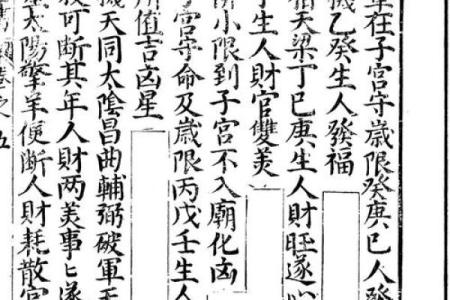 軍在子宮守歲限癸庚巳人發
機乙癸生人發福
相天梁丁巳庚生人財旺遂心
生人財官雙美
小限到子宮不入廟化凶
子宮守命及歲限丙戊壬生人
值吉凶星
機天同太陰昌曲輔弼破軍天
可斷其年人財兩美事〻遂
太陽擎羊便斷人財耗散官
卷之五